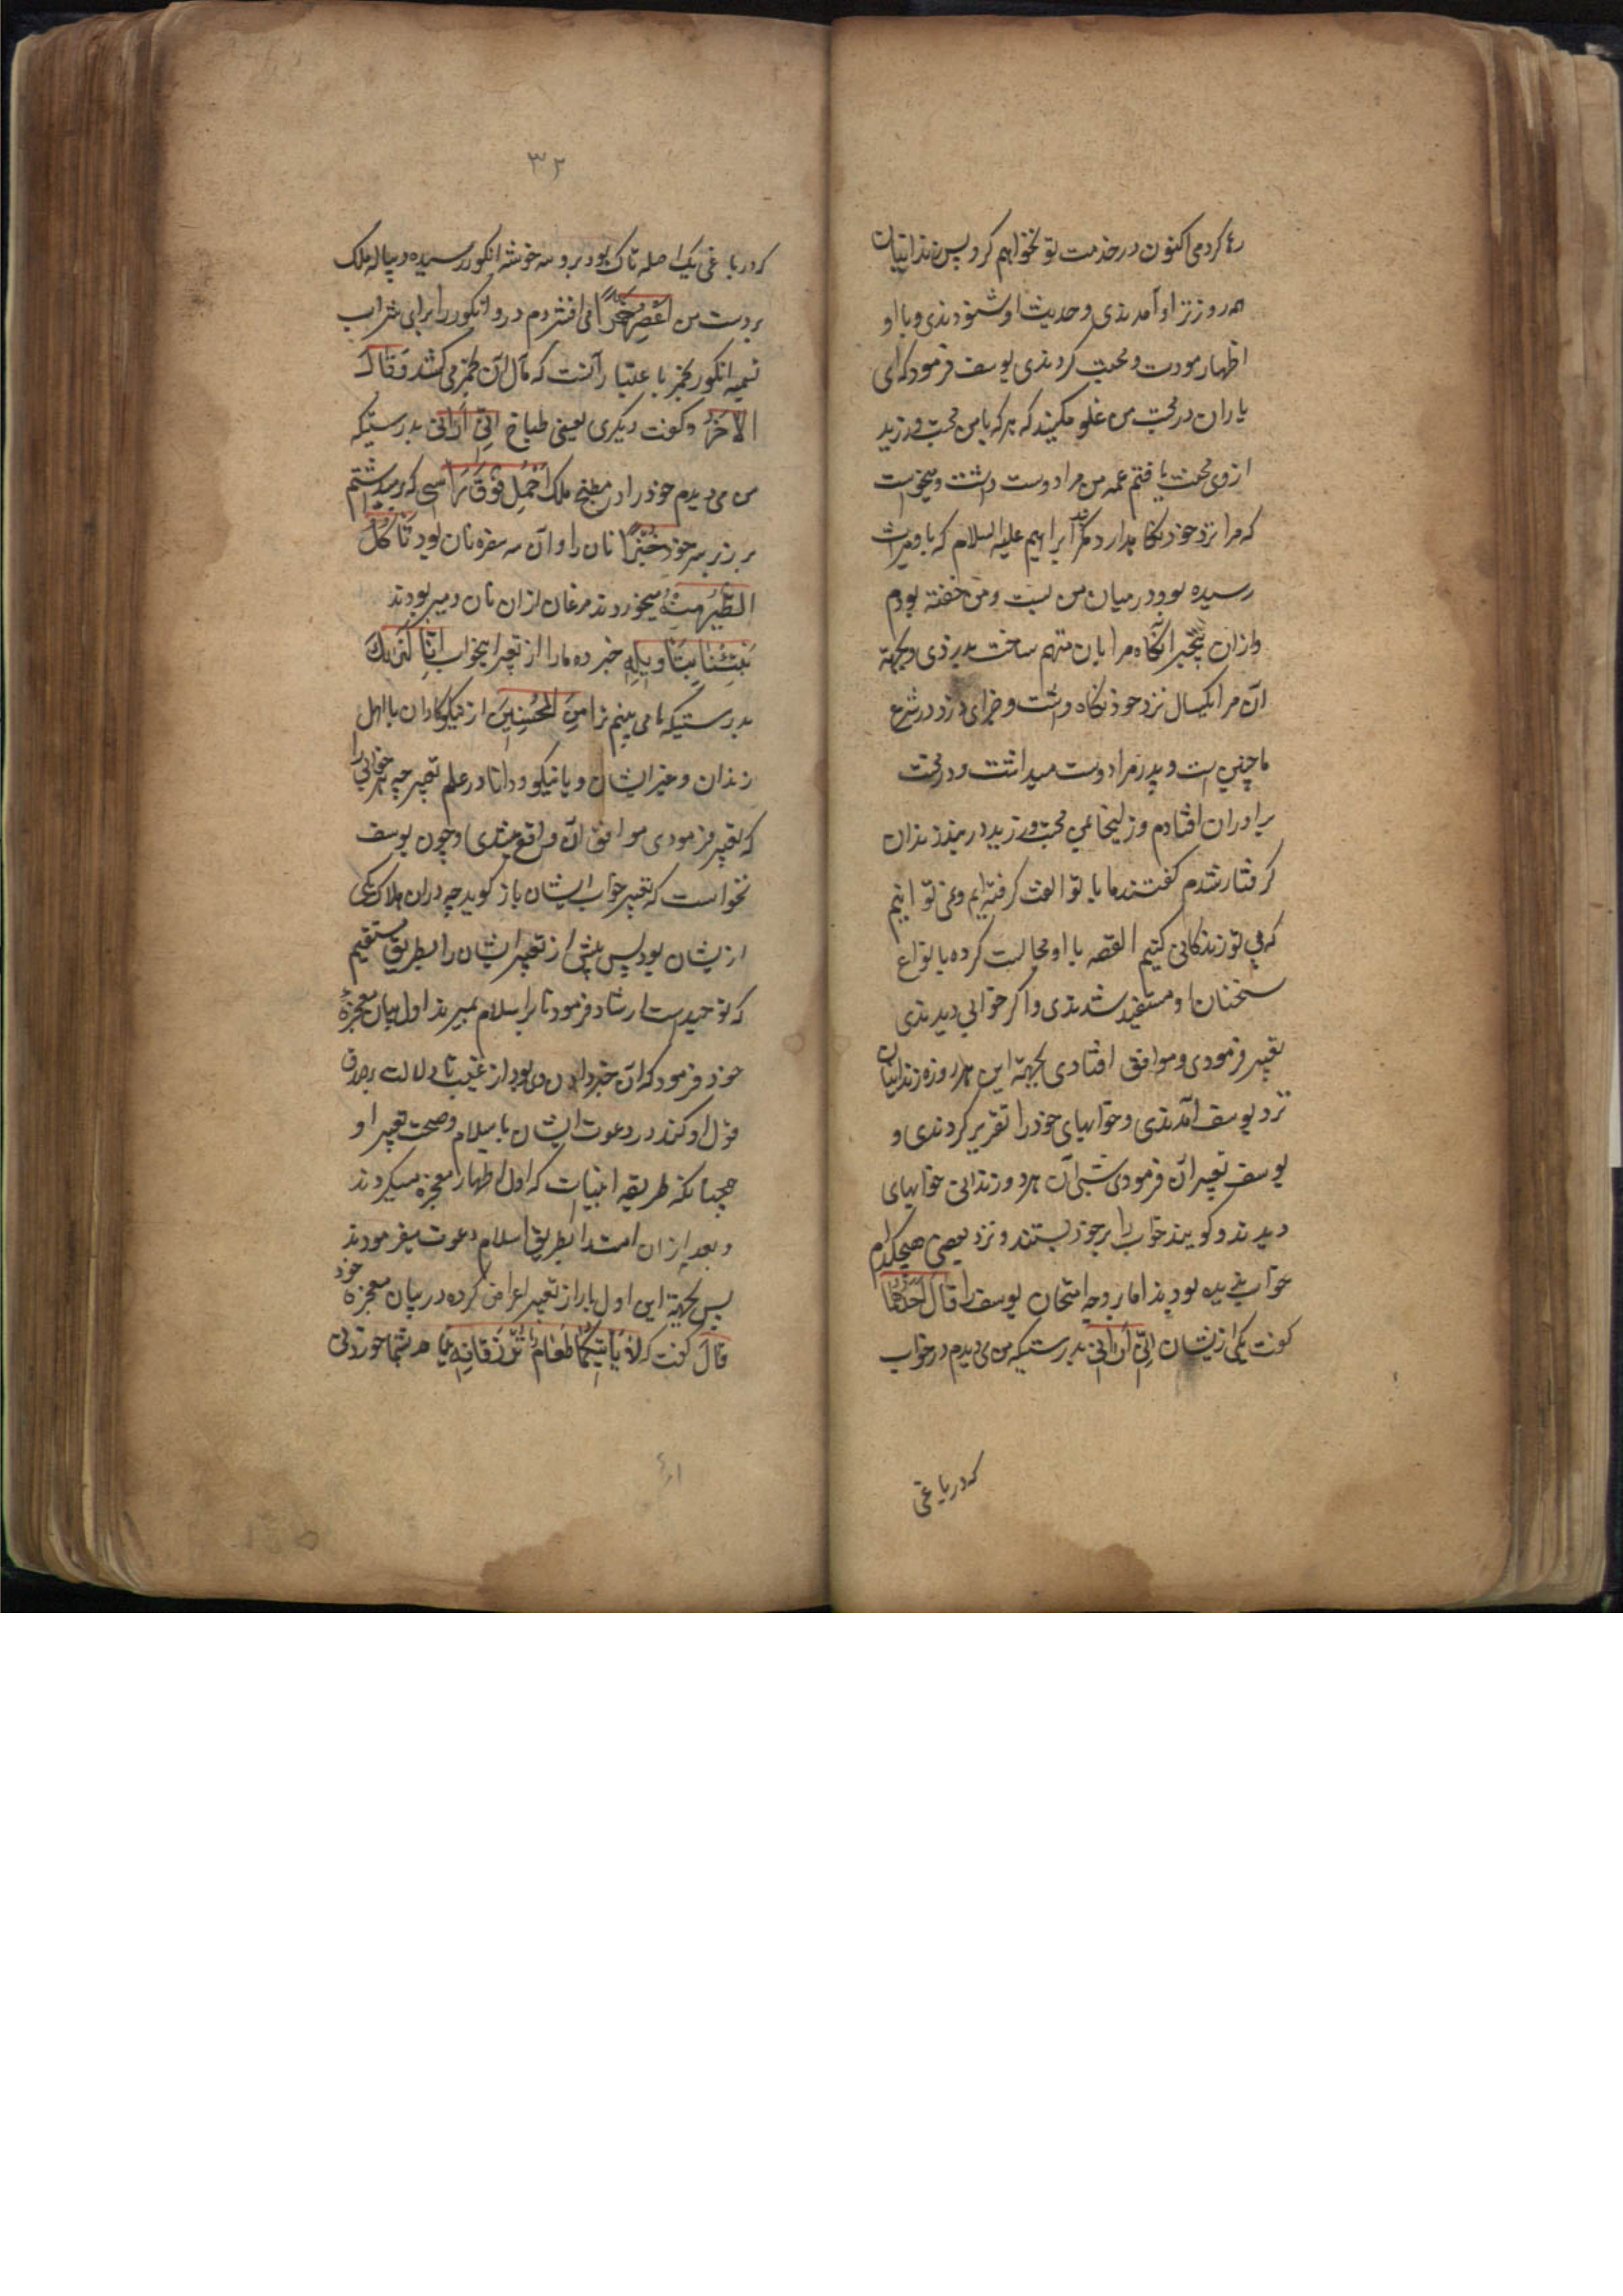 رها کردمی اکنون در خدمت تو نخواهم کرد پس زندانیان
هر روز نزد او آمدندی و حدیث او شنودندی و با او
اظهار مودت و محبت کردندی یوسف فرمود که ای
یاران در محبت من غلو مکنید که هر که با من محبت ورزید
از وی محنت یافتم عمه من مرا دوست داشت و میخواست
که مرا نزد خود نگاه دارد کمر ابراهیم علیه السلام که باو میراث
رسیده بود در میان من بست و من خفته بودم
وازان بیخبر آنکاه مرا بان متهم ساخت بدزدی و بجهة
آن مرا یکسال نزد خود نکاه داشت و جزای دزد در شرع
ما چنین است و پدر مرا دوست میداشت و در محنت
برادران افتادم و زلیخا می محبت ورزید در بند زندان
کرفتار شدم کفتند ما با تو الفت کرفته ایم و نمی توانیم
که بی تو زندکانی کنیم القصه با او مجالست کرده بانواع
سخنان او مستفید شدندی و اکر خوابی دیدندی
تعبیر فرمودی و موافق افتادی بجهة این هر روزه زندانیان
نزد یوسف آمدندی و خوابهای خود را تقریر کردندی و
یوسف تعبیر آن فرمودی شبی آن هر دو زندانی خوابهای
دیدند و کویند خواب را بر خود بستند و نزد بعضی هیچکدام
خواب ندیده بودند اما بر وجه امتحان یوسف را قَالَ اَحَدُهُمَا
کفت یکی ازیشان اِنِّی اَرَانِی بدرستیکه من می دیدم در خواب
که در باغی
۳۲
که در باغی یک اصله تاک بود برو سه خوشه انکور رسیده و پیاله ملک
بر دست من اَعْصِرُ خَمْرًا می افشردم درو انکور را برای شراب
تسمیه انکور بخمر باعتبار آنست که مآل آن بخمر می کشد وَقَالَ
الْآخَرُ و کفت دیکری یعنی طباخ اِنِّی اَرَانِی بدرستیکه
من می دیدم خود را در مطبخ ملک اَحْمِلُ فَوْقَ رَاْسِی که برمیداشتم
بر زبر سر خود خُبْزًا نان را و آن سه سفره نان بود تَاْکُلُ
الطَّیْرُ مِنْهُ میخوردند مرغان ازان نان و میربودند
نَبِّئْنَا بِتَاْوِیلِهِ خبر ده ما را از تعبیر این خواب اِنَّا نَرَاکَ
بدرستیکه ما می بینم ترا مِنَ الْمُحْسِنِینَ از نیکوکاران با اهل
زندان و غیر ایشان و یا نیکو و دانا در علم تعبیر چه هر خوابی را
که تعبیر فرمودی موافق آن واقع شدی و چون یوسف
نخواست که تعبیر خواب ایشان باز کوید چه دران هلاک یکی
ازیشان بود پس پیش از تعبیر ایشان را بطریق مستقیم
که توحیدست ارشاد فرمود تا بر اسلام بمیرند اول بیان معجزهٔ
خود فرمود که آن خبر دادن وی بود از غیب تا دلالت بر صدق
قول او کند در دعوت ایشان باسلام و صحت تعبیر او
همچنانکه طریقه انبیاست که اول اظهار معجزه میکردند
و بعد ازان امت را بطریق اسلام دعوت میفرمودند
پس بجهة این اول بار از تعبیر اعراض کرده در بیان معجزه خود
قَالَ کفت که لَا یَاْتِیکُمَا طَعَامٌ تُرْزَقَانِهِ نیاید شما خوردنی